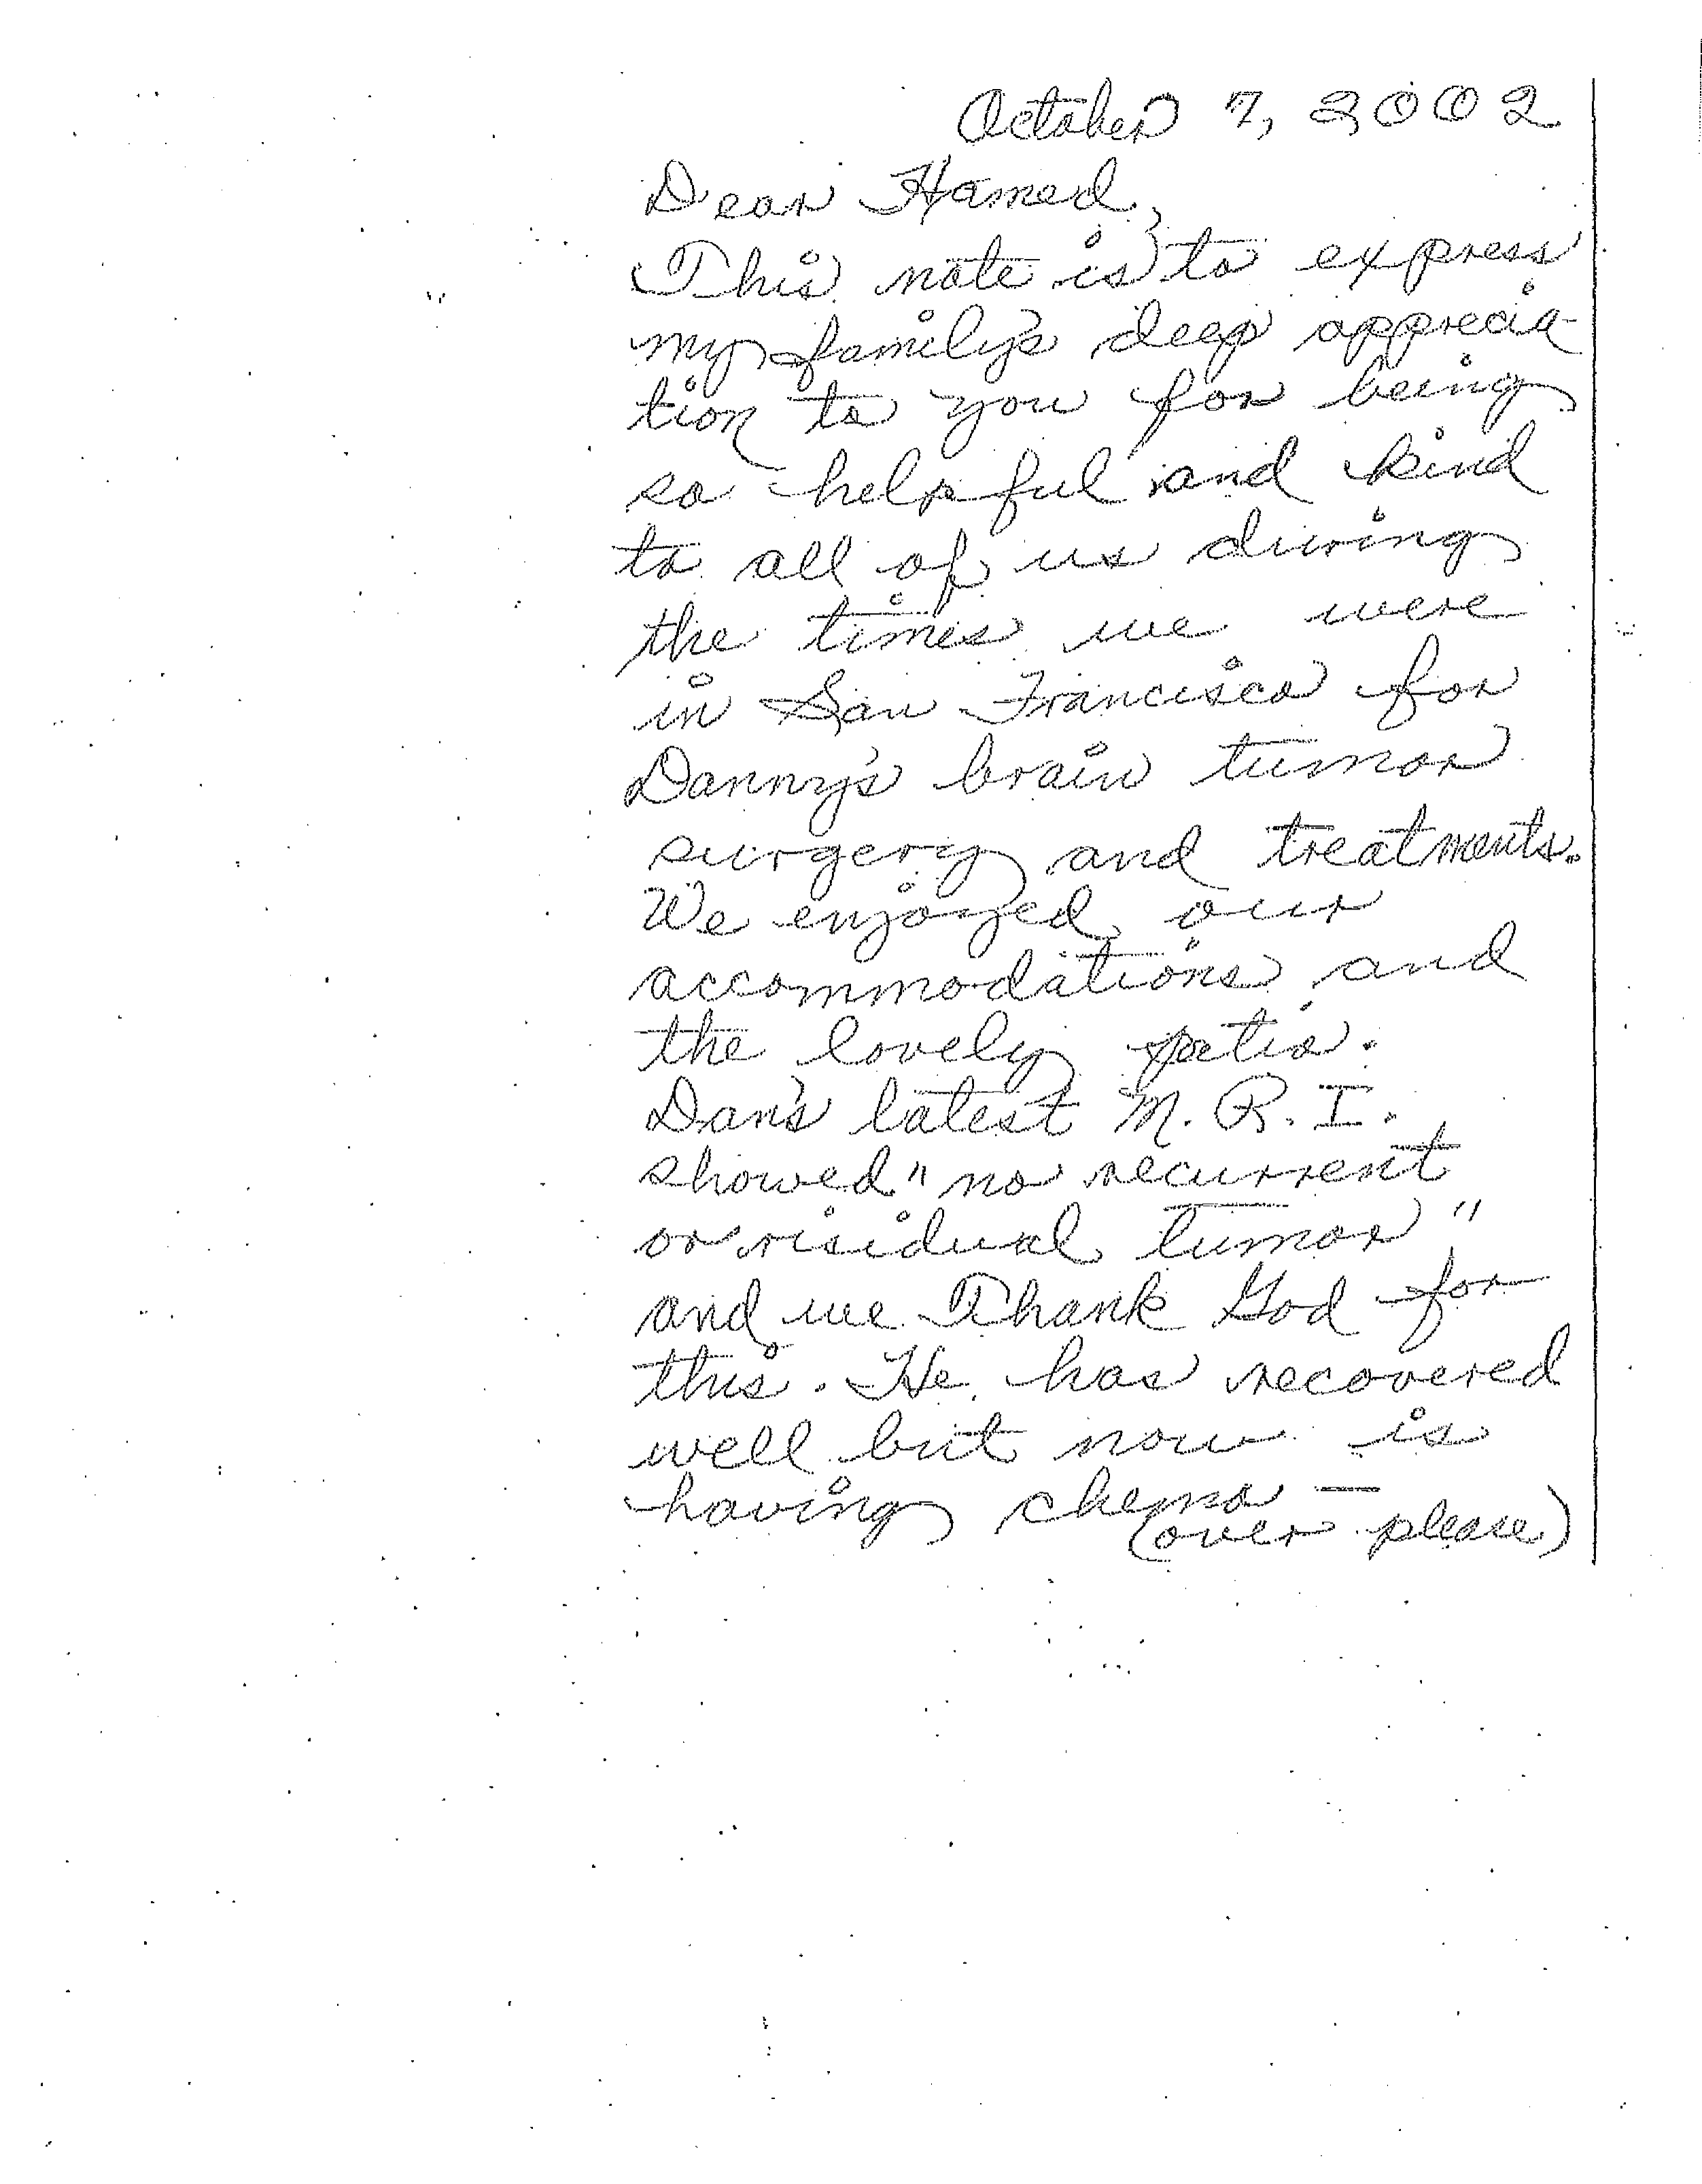 October 7, 2002
Dear Hamed,
This note is to express
my family's deep apprecia-
tion to you for being
so helpful and kind
to all of us during
the times we were
in San Francisco for
Danny's brain tumor
surgery and treatments.
We enjoyed our
accommodations and
the lovely patio.
Dan's latest M.R.I.
showed "no recurrent
or risidual tumor"
and we Thank God for
this. He has recovered
well but now is
having chemo —
(over please)